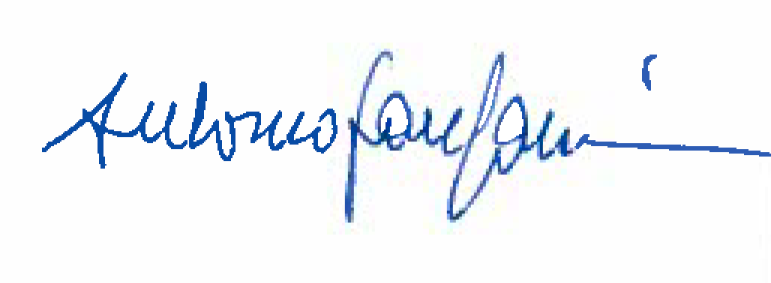 Antonio Fanfani